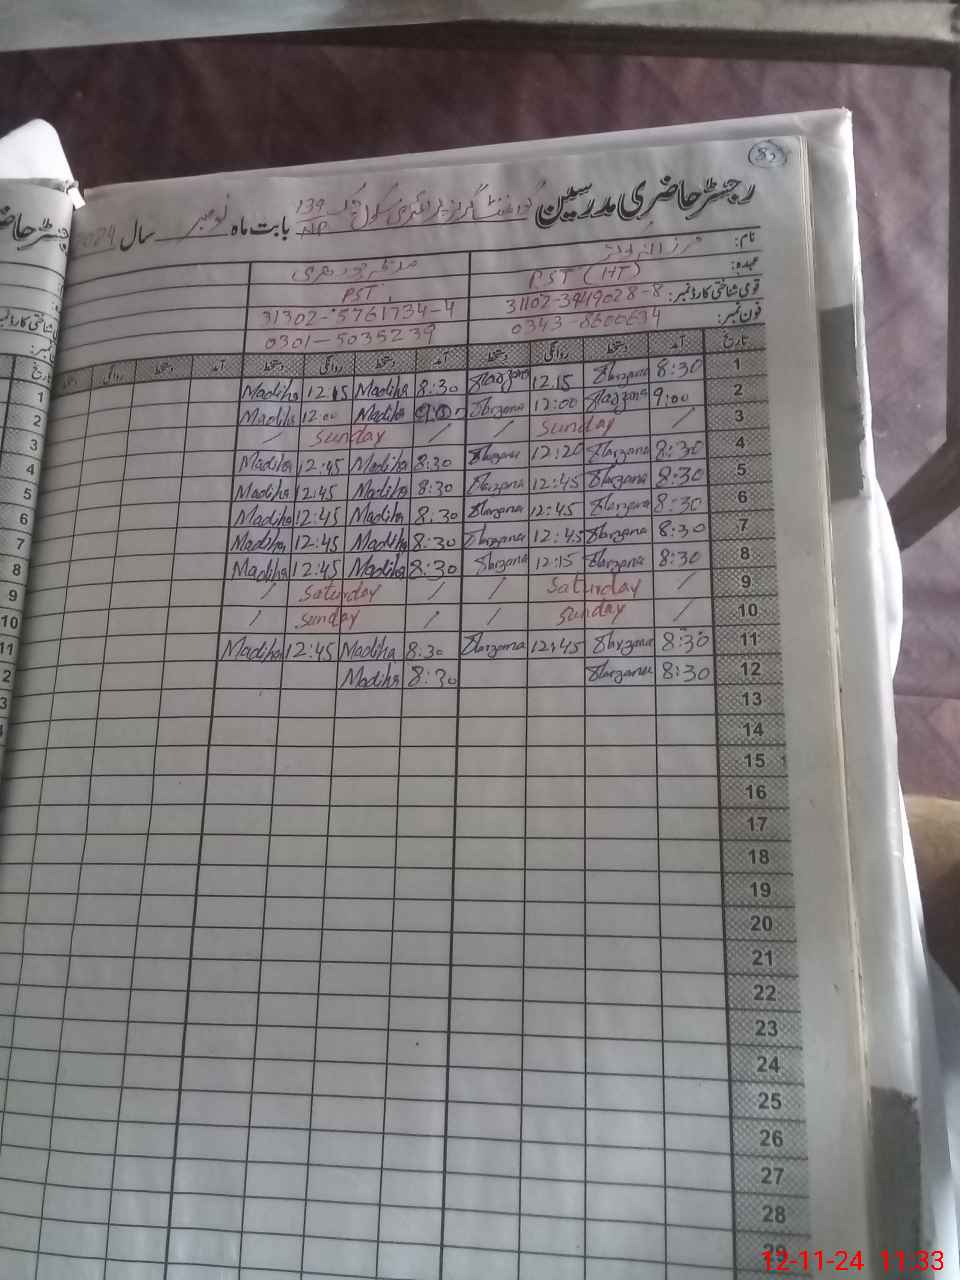 8
رجسٹر حاضری مدرسین گورنمنٹ گرلز پرائمری سکول چک 139 NP بابت ماہ نومبر سال 2024
نام:
عہدہ: PST (HT) PST
قومی شناختی کارڈ نمبر: 31102-3949028-8 31302-5761734-4
فون نمبر: 0343-8600634 0301-5035239
تاریخ آمد دستخط روانگی دستخط آمد دستخط روانگی دستخط آمد دستخط روانگی دستخط
1 8:30 Farzana 12:15 Farzana 8:30 Madiha 12:15 Madiha
2 9:00 Farzana 12:00 Farzana 9:00 Madiha 12:00 Madiha
3 / Sunday / / Sunday /
4 8:30 Farzana 12:20 Farzana 8:30 Madiha 12:45 Madiha
5 8:30 Farzana 12:45 Farzana 8:30 Madiha 12:45 Madiha
6 8:30 Farzana 12:45 Farzana 8:30 Madiha 12:45 Madiha
7 8:30 Farzana 12:45 Farzana 8:30 Madiha 12:45 Madiha
8 8:30 Farzana 12:15 Farzana 8:30 Madiha 12:45 Madiha
9 / Saturday / / Saturday /
10 / Sunday / / Sunday /
11 8:30 Farzana 12:45 Farzana 8:30 Madiha 12:45 Madiha
12 8:30 Farzana 8:30 Madiha
13
14
15
16
17
18
19
20
21
22
23
24
25
26
27
28
29
12-11-24 11:33